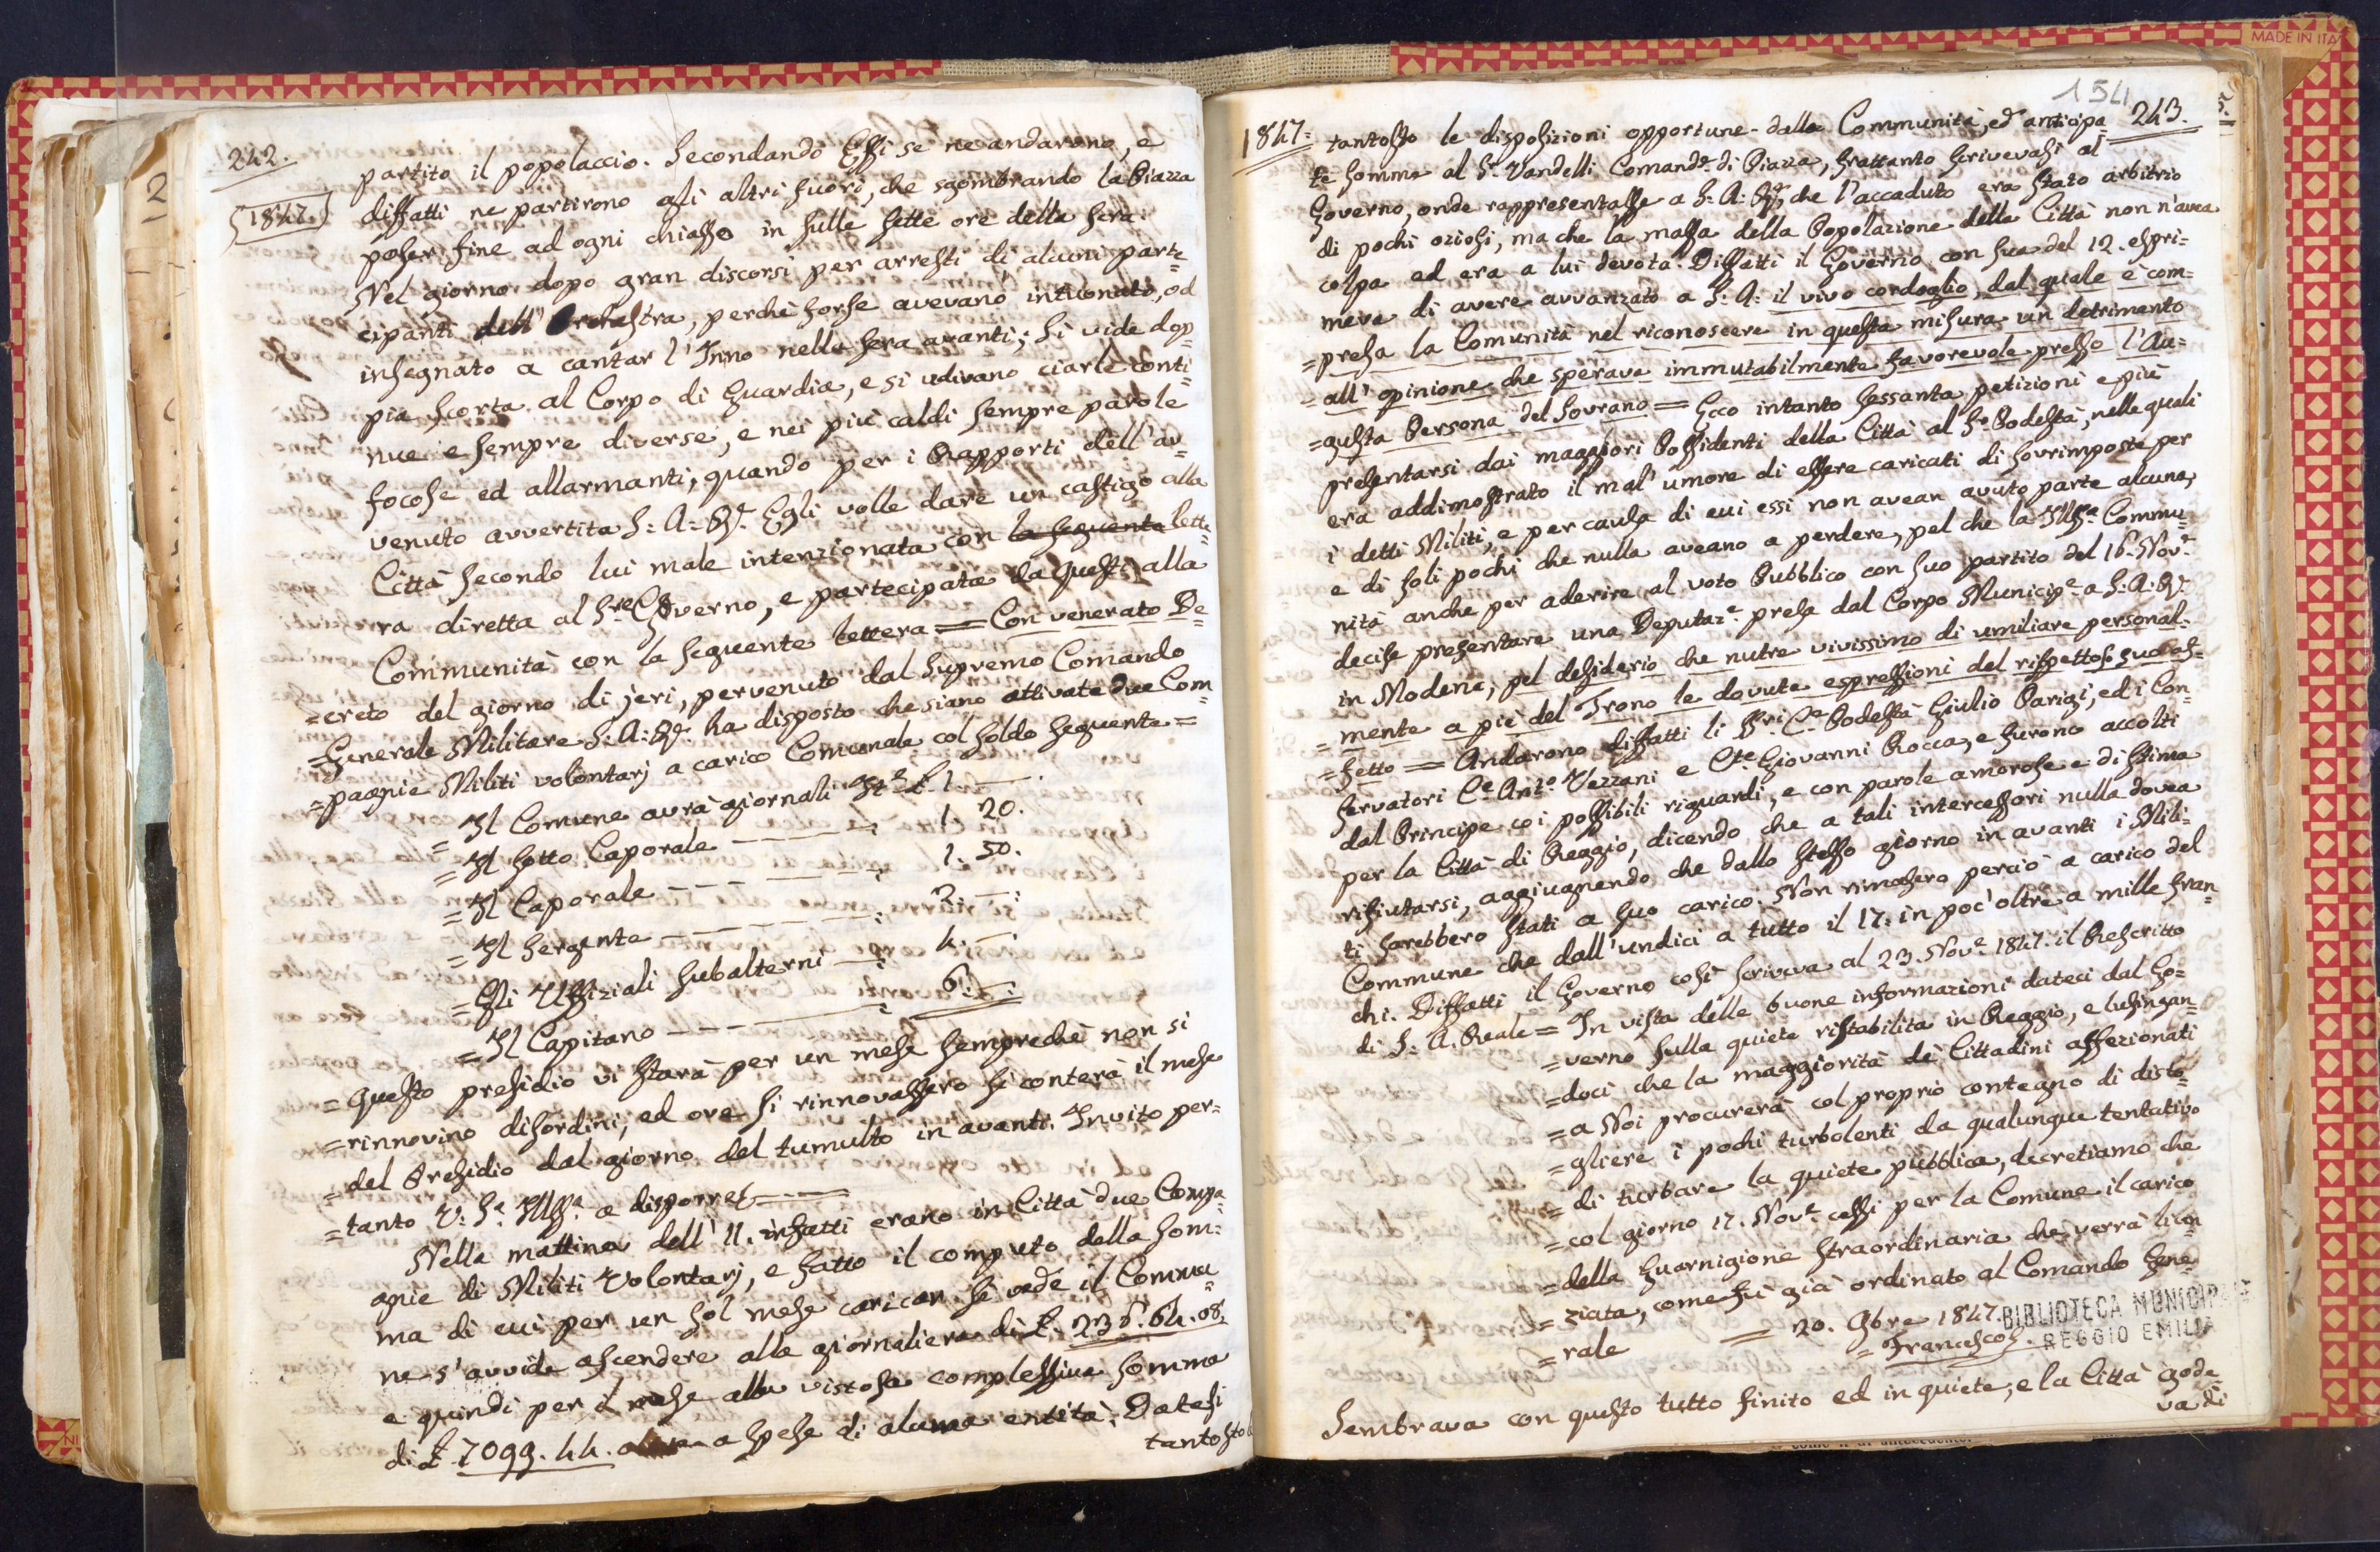 242.
1847.
partito il popolaccio. Secondando Essi se ne andarono, e
diffatti ne partirono gli altri fuori, che sgombrando la Piazza
poser fine ad ogni chiasso in sulle sette ore della sera.
Nel giorno dopo gran discorsi per arresti di alcuni parte=
cipanti dell'Orchestra, perchè forse avevano intuonato, od
insegnato a cantar l'Inno nella sera avanti; si vide dop=
pia scorta al Corpo di Guardia, e si udivano ciarle conti=
nue e sempre diverse, e nei più caldi sempre parole
focose ed allarmanti, quando per i Rapporti dell'av=
venuto avvertita S: A: R. Egli volle dare un castigo alla
Città secondo lui male intenzionata con la seguente lette=
ra diretta al Sre Governo, e partecipata da questi alla
Communità con la seguente lettera = Con venerato De=
=creto del giorno di jeri, pervenuto dal Supremo Comando
=Generale Militare S: A: R. ha disposto che siano attivate due Com=
=pagnie Militi volontarj a carico Comunale col soldo seguente =
= Il Comune avrà giornali It.e £. 1 — .
= Il sotto Caporale — — ; 1 20.
= Il Caporale — — — ; 1. 50.
= Il Sergente — — — ; 2. — :
= Gli Uffiziali subalterni — ; 4. — .
= Il Capitano — — — ; 6. — .
= Questo presidio vi starà per un mese sempredhè non si
=rinnovino disordini, ed ove si rinnovassero si conterà il mese
=del Presidio dal giorno del tumulto in avanti. Invito per=
=tanto V: Sa. Illsa. a disporre — —
Nella mattina dell'11. infatti erano in Città due Compa=
gnie di Militi Volontarj, e fatto il computo della som=
ma di cui per un sol mese caricar si vede il Commu=
ne s'avvide ascendere alla giornaliera di £. 236. 64. 08.
e quindi per il mese alla vistosa complessiva somma
di £ 7099. 44. a spese di alcuna entità. Datesi
tantosto
154
243.
1847=
tantosto le disposizioni opportune dalla Communità, ed anticipa=
te somme al Sr. Vandelli Comande. di Piazza, frattanto scrivevasi al
Governo, onde rappresentasse a S: A: R. che l'accaduto era stato arbitrio
di pochi oziosi, ma che la massa della Popolazione della Città non n'avea
colpa ed era a lui devota. Diffatti il Governo con sua del 12. espri=
meva di avere avvanzato a S: A: il vivo cordoglio, dal quale è com=
=presa la Comunità nel riconoscere in questa misura un detrimento
=all'opinione che sperava immutabilmente favorevole presso l'Au=
=gusta Persona del Sovrano = Ecco intanto sessanta petizioni e più
presentarsi dai maggiori Possidenti della Città al Sr. Podestà, nelle quali
era addimostrato il mal'umore di essere caricati di sovrimposte per
i detti Militi, e per causa di cui essi non avean avuto parte alcuna,
e di soli pochi che nulla aveano a perdere, pel che la Illsa. Commu=
nità anche per aderire al voto Pubblico con suo partito del 16. Nove.
decise presentare una Deputaze. presa dal Corpo Municipe. a S: A: R.
in Modena, pel desiderio che nutre vivissimo di umiliare personal=
=mente a piè del Trono le dovute espressioni del rispettoso suo af=
=fetto = Andarono diffatti li Sri. Ce. Podestà Giulio Parigi, ed i Con=
servatori Ce. Anto. Vezzani e Cte. Giovanni Rocca, e furono accolti
dal Principe coi possibili riguardi, e con parole amorose e di stima
per la Città di Reggio, dicendo che a tali intercessori nulla dovea
rifiutarsi, aggiugnendo che dallo stesso giorno in avanti i Mili=
ti sarebbero stati a suo carico. Non rimasero perciò a carico del
Commune che dall'undici a tutto il 17. in poc'oltre a mille fran=
chi. Diffatti il Governo così scriveva al 23. Nove. 1847. il Rescritto
di S: A. Reale = In vista delle buone informazioni dateci dal Go=
=verno sulla quiete ristabilita in Reggio, e lusingan=
=doci che la maggiorità de' Cittadini affezionati
=a Noi procurerà col proprio contegno di disto=
=gliere i pochi turbolenti da qualunque tentativo
=di turbare la quiete pubblica, decretiamo che
=col giorno 17. Nove. cessi per la Comune il carico
=della Guarnigione straordinaria che verrà licen=
=ziata, come fù già ordinato al Comando Gene=
=rale = 20. 9bre 1847.
= Francesco
BIBLIOTECA MUNICIP
REGGIO EMILIA
Sembrava con questo tutto finito ed in quiete, e la Città gode=
va di
MADE IN ITA